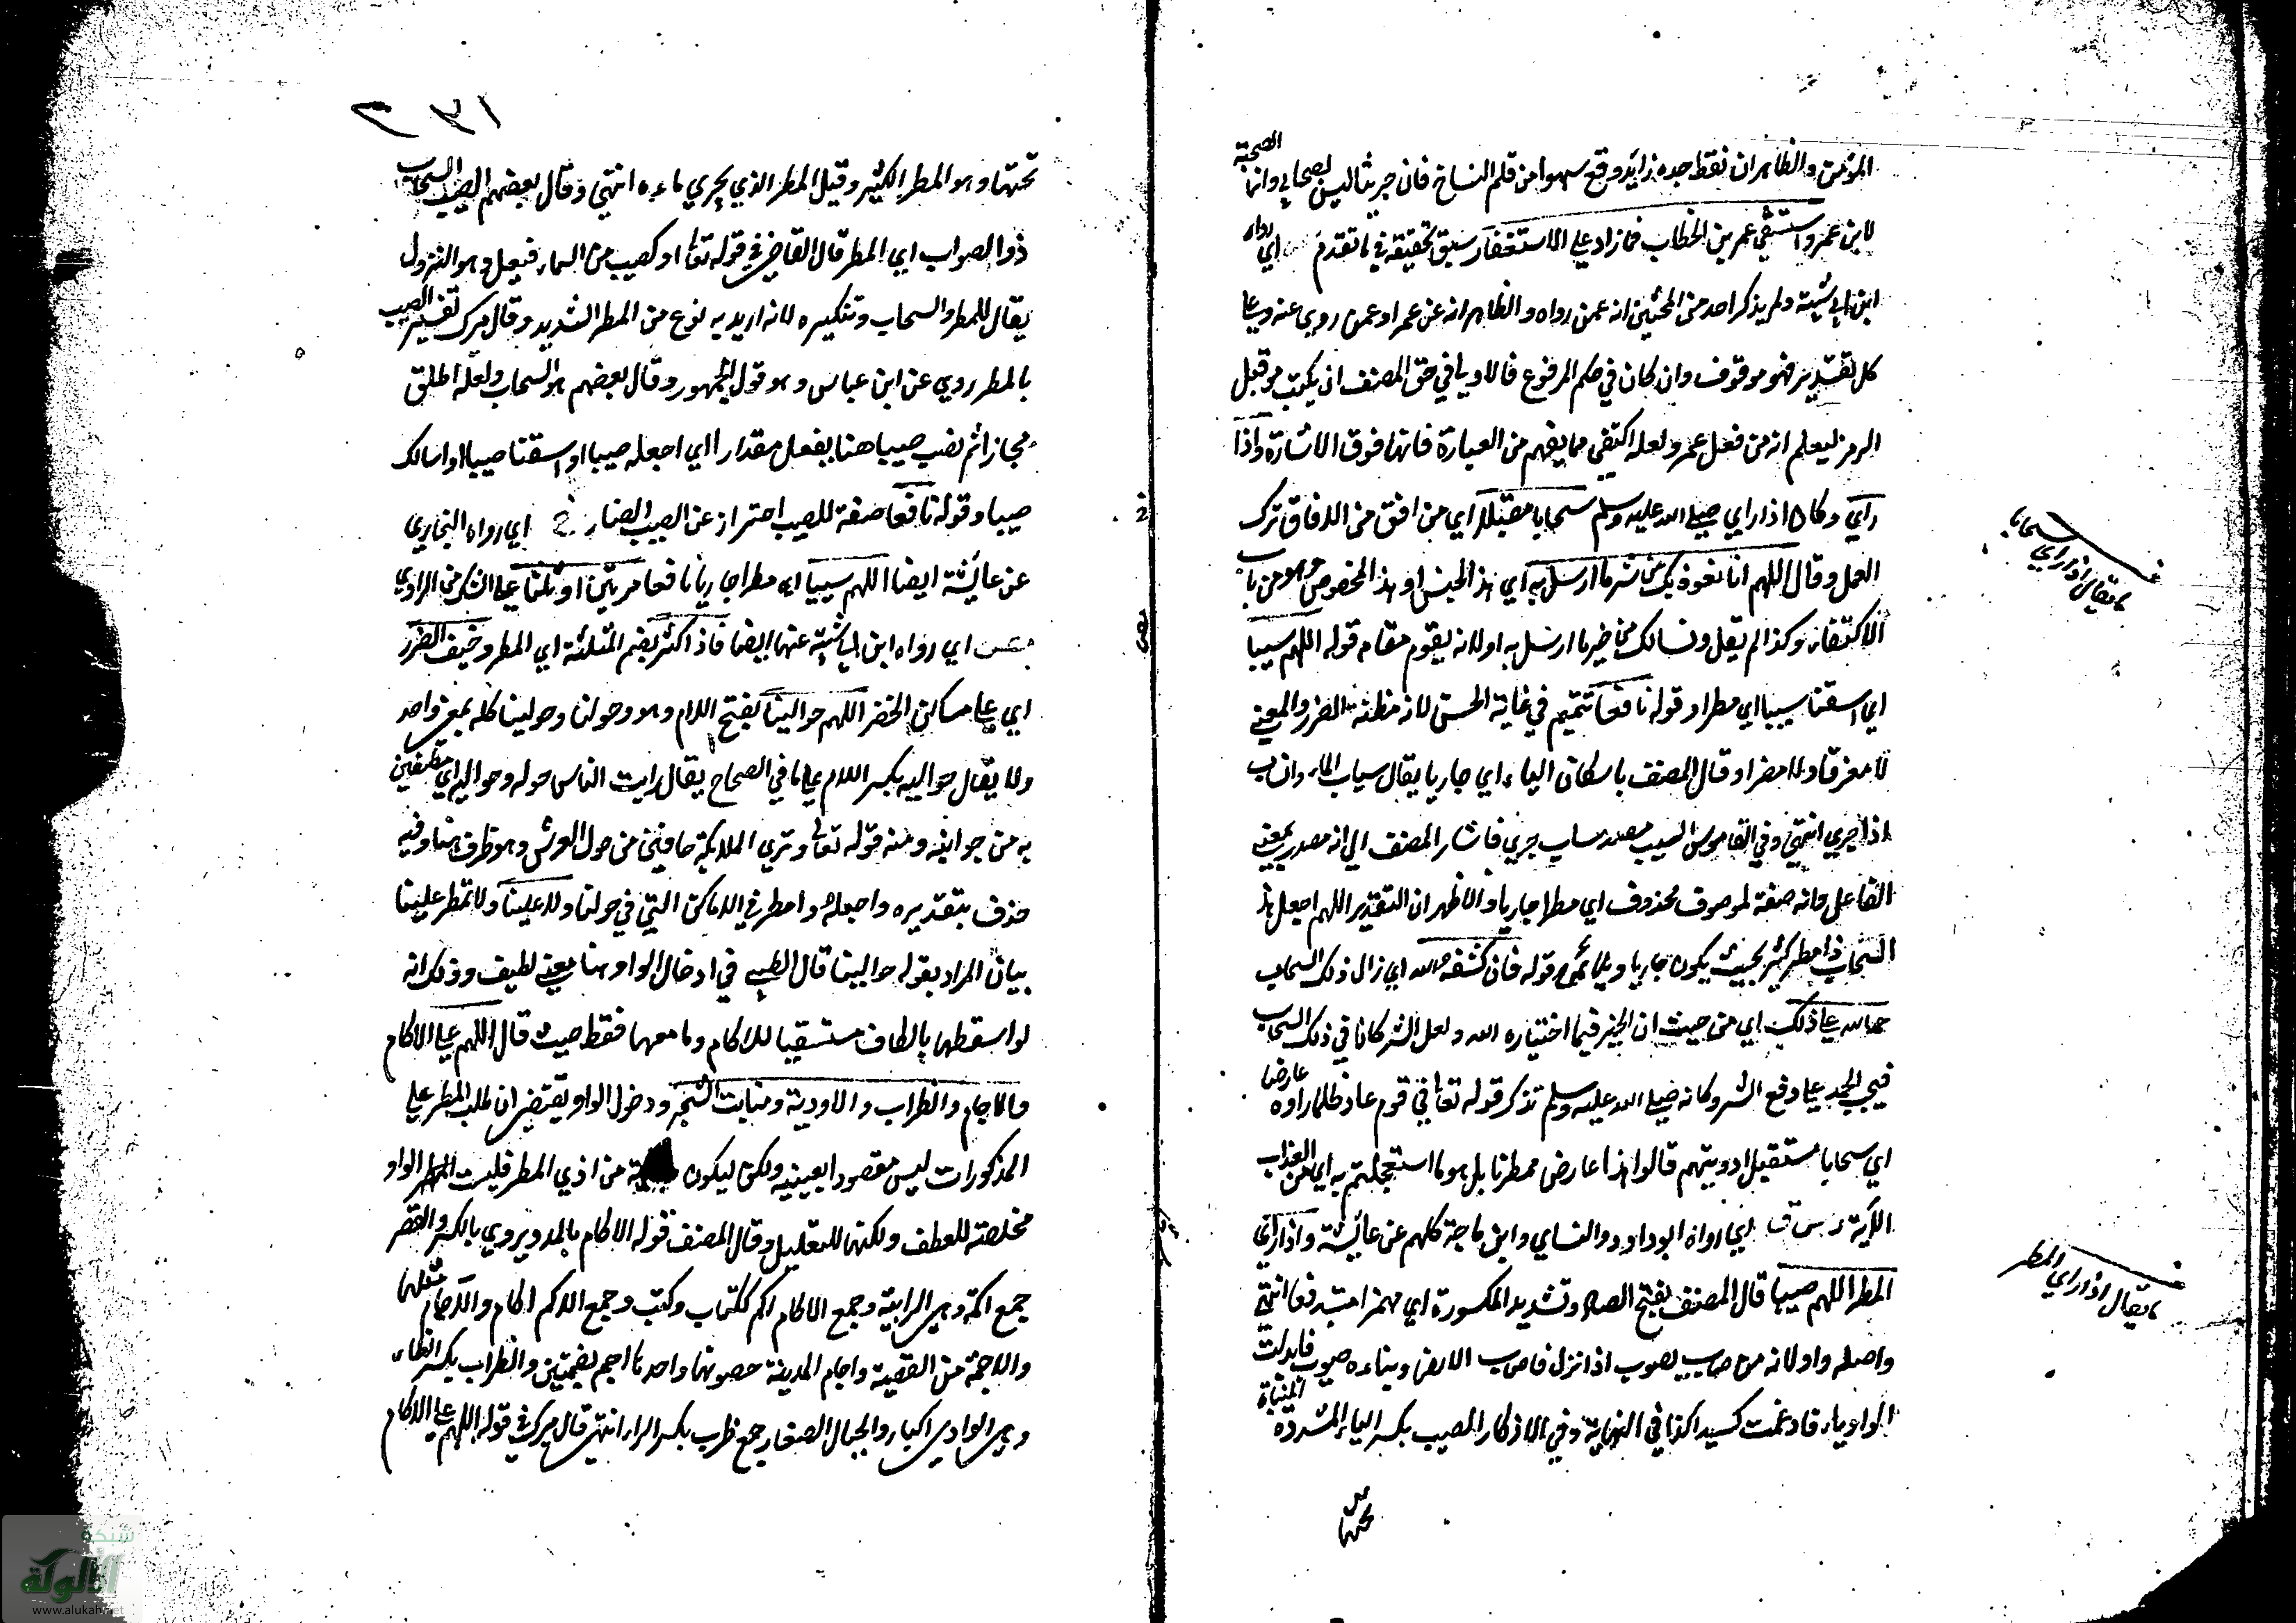 المؤمن والظاهر ان نقط جده زائد وقع سهوا من قلم النساخ فان حريثا ليس بصحابي وانما الصحبة
لابن عمرو استسقى عمر بن الخطاب فما زاد على الاستغفار سبق تحقيقه في ما تقدم اي رواه
ابن ابي شيبة ولم يذكر احد من المحشين انه عمن رواه والظاهر انه عن عمر او عمن روي عنه وعلى
كل تقدير فهو موقوف وان كان في حكم المرفوع فالاولى في حق المصنف ان يكتب مو قبل
الرمز ليعلم انه من فعل عمر ولعله اكتفى مما يفهم من العبارة فانها فوق الاشارة واذا
راى وكان اذا راي صلى الله عليه وسلم سحابا مقبلا اي من افق من الافاق ترك
العمل وقال اللهم انا نعوذ بك من شر ما ارسل به اي هذا الجنس او هذا المخصوص وهو من باب
الاكتفاء وكذا لم يقل ونسالك من خير ما ارسل به او لانه يقوم مقام قوله اللهم سيبا
اي اسقنا سيبا اي مطرا وقوله نافعا تتميم في غاية الحسن لانه مظنة الضرر والمعنى
لا مغرقا ولا مضرا وقال المصنف باسكان الياء اي جاريا يقال ساب الماء وانساب
اذا جري انتهى وفي القاموس السيب مصدر ساب جري فاشار المصنف الى انه مصدر بمعنى
الفاعل وانه صفة لموصوف محذوف اي مطرا جاريا والاظهر ان التقدير اللهم اجعل هذا
السحاب ذا مطر كثير بحيث يكون جاريا ويلائمه قوله فان كشفه الله اي زال ذلك السحاب
حمد الله على ذلك اي من حيث ان الخير فيما اختياره الله ولعل الشر كان في ذلك السحاب
فيجب الحمد على دفع الشر وكانه صلى الله عليه وسلم تذكر قوله تعالى في قوم عاد فلما راوه عارضا
اي سحابا مستقبل اوديتهم قالوا هذا عارض ممطرنا بل هو ما استعجلتم به اي من العذاب
الآية د س ق اي رواه ابو داود والنساي وابن ماجة كلهم عن عائشة واذا راى
المطر اللهم صيبا قال المصنف بفتح الصاد وتشديد المكسورة اي منهمرا متدفقا انتهى
واصله واو لانه من صاب يصوب اذا نزل فاصاب الارض وبناءه صيوب فابدلت
الواو ياء فادغمت كسيد اكذا في النهاية وفي الاذكار الصيب بكسر الياء المشددة المثناة
تحتها
ما يقال اذا راي سحابا
ما يقال اذا راي المطر
١٣١
تحتها وهو المطر الكثير وقيل المطر الذي يجري ماءه انتهى وقال بعضهم الصيب السحاب
ذو الصواب اي المطر قال القاضي في قوله تعالى او كصيب من السماء فيعل وهو النزول
يقال للمطر والسحاب وتنكيره لانه اريد به نوع من المطر الشديد وقال ميرك تفسير الصيب
بالمطر روي عن ابن عباس وهو قول الجمهور وقال بعضهم هو السحاب ولعله اطلق
مجازا ثم نصب صيبا هنا بفعل مقدار ا اي اجعله صيبا او اسقنا صيبا او اسالك
صيبا وقوله نافعا صفة للصيب احتراز عن الصيب الضار خ اي رواه البخاري
عن عائشة ايضا اللهم سيبا اي مطرا جاريا نافعا مرتين او ثلثا على الشك من الراوي
مص اي رواه ابن ابي شيبة عنها ايضا فاذا كثر بضم المثلثة اي المطر وخيف الضرر
اي على مساكن الحضر اللهم حوالينا بفتح اللام وهو وحولنا وحولينا كله بمعنى واحد
ولا يقال حواليه بكسر اللام على ما في الصحاح يقال رايت الناس حوله وحواليه اي مطيفين
به من جوانبه ومنه قوله تعالى وتري الملائكة حافين من حول العرش وهو ظرف هنا وفيه
حذف بتقديره واجعله وامطر في الاماكن التي في حولنا ولا علينا ولا تمطر علينا
بيان المراد بقوله حوالينا قال الطيبي في ادخال الواو هنا معنى لطيف وذلك انه
لو اسقطها بالطاف مستسقيا للاكام وما معها فقط حيث قال اللهم على الاكام
والاجام والظراب والاودية ومنابت الشجر ودخول الواو يقتضي ان طلب المطر على
المذكورات ليس مقصودا بعينه ولكن ليكون من اذي المطر فليست الواو
مخلصة للعطف ولكنها للتعليل وقال المصنف قوله الاكام بالمد ويروي بالكسر والقصر
جمع اكمة وهي الرابية وجمع الاكام اكم ككتاب وكتب وجمع الاكم اكام والآجام مثلها
والاجمة من القصبة واجام المدينة حصونها واحدها اجم بضمتين والظراب بكسر الظاء
وهي الوادي الكبار والجبال الصغار جمع ظرب بكسر الراء انتهى قال ميرك في قوله اللهم على الاكام
شبكة
الألوكة
www.alukah.net